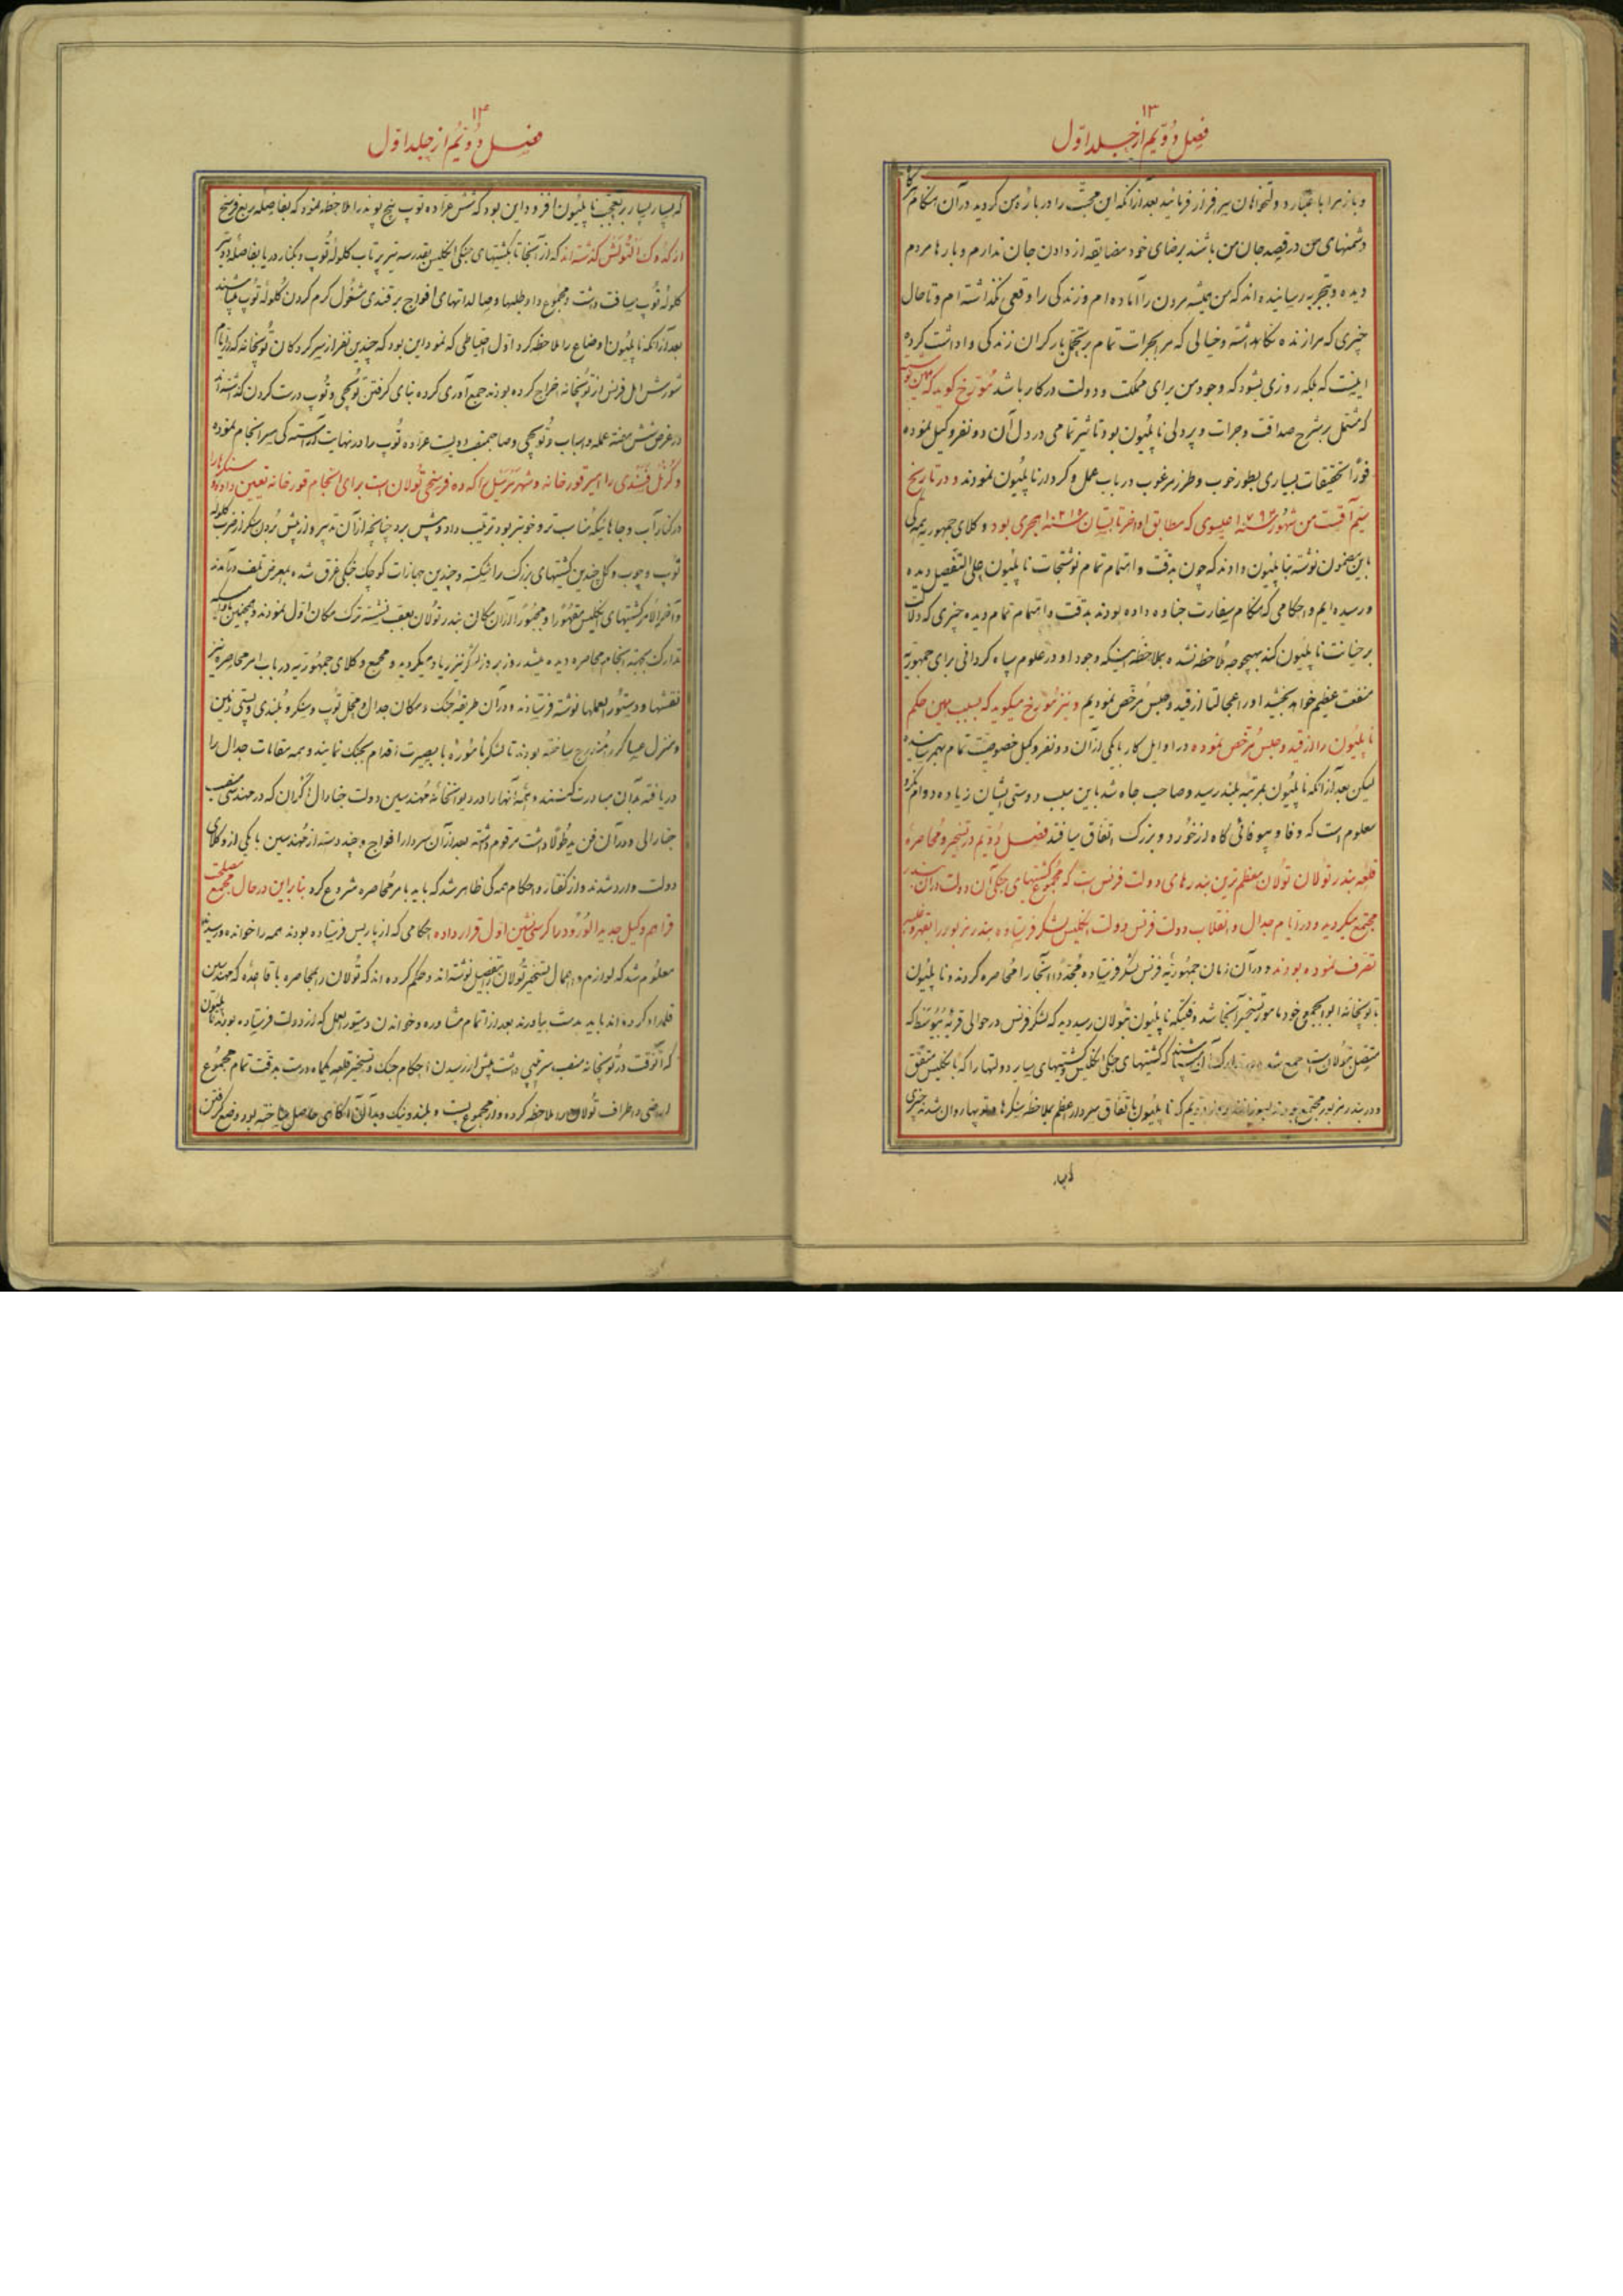 ۱۳
فصل دویم از جلد اول
و باز مرا با عتبار و دلتخواهان سرفراز فرمائید بعد از آنکه این محبت را در باره من کردید در آن هنگام اگر
دشمنهای من در قصد جان من باشند برضای خود مضایقه از دادن جان ندارم و بارها مردم
دیده و بتجربه رسانیده‌اند که من همیشه مردن را آماده‌ام و زندگی را وقعی نگذاشته‌ام و تا حال
چیزی که مرا زنده نگاهداشته و خیالی که مرا بجرات تمام بر تحمل بار گران زندگی واداشت کرده
اینست که بلکه روزی بشود که وجود من برای مملکت و دولت در کار باشد مورخ گوید که همین نوشته
که مشتمل بر شرح صداقت و جرات و پردلی ناپلیون بود تاثیر تمامی در دل آن دو نفر وکیل نموده
فورا تحقیقات بسیاری بطور خوب و طرز مرغوب در باب عمل و کردار ناپلیون نمودند و در تاریخ
سیم آقست من شهور سنه ۱۷۹۳ عیسوی که مطابق اواخر تابستان سنه ۱۲۱۵ هجری بود وکلای جمهوریه همگی
باین مضمون نوشته بناپلیون دادند که چون بدقت و اهتمام تمام نوشتجات ناپلیون علی التفصیل دیده
و رسیده‌ایم و احکامی که هنگام سفارت جناوه داده بودند بدقت و اهتمام تمام دیده چیزی که دلالت
بر خیانت ناپلیون کند بهیچوجه ملاحظه نشده بملاحظه اینکه وجود او در علوم سپاه گردانی برای جمهوریه
منفعت عظیم خواهد بخشید او را عجالتا از قید و حبس مرخص نمودیم و نیز مورخ میگوید که بسبب همین حکم
ناپلیون را از قید و حبس مرخص نموده در اوایل کار با یکی از آن دو نفر وکیل خصوصیت تمام بهمرسانیده
لیکن بعد از آنکه ناپلیون بمرتبه بلند رسید و صاحب جاه شد باین سبب دوستی ایشان زیاده دوام نکرد
معلوم است که وفا و بیوفائی گاه از خورد و بزرگ اتفاق میافتد فصل دویم در تسخیر و محاصره
قلعه بندر تولان تولان معظم‌ترین بندرهای دولت فرنس است که مجموع کشتیهای جنگی آن دولت در آن بندر
مجتمع میگردید و در ایام جدال و انقلاب دولت فرنس دولت انگلیس لشگر فرستاده بندر مزبور را بقهر و غلبه
تصرف نموده بودند و در آن زمان جمهوریه فرنس لشگر فرستاده مجددا آنجا را محاصره کردند و ناپلیون
با توپخانه ابوابجمعی خود مامور تسخیر آنجا شد وقتیکه ناپلیون بتولان رسید دید که لشکر فرنس در حوالی قریه بیوسط که
متصل بتولان است جمع شده که کشتیهای جنگی انگلیس و کشتیهای سایر دولتها را که با انگلیس متفق
و در بندر مزبور مجتمع بودند ناپلیون باتفاق سردار اعظم بملاحظه سنگرها روان شدند چیزی
۱۴
فصل دویم از جلد اول
که بسیار بسیار بر تعجب ناپلیون افزود این بود که شش عراده توپ پنج پوند را ملاحظه نمود که بفاصله ربع فرسخ
از گدوک النولش گذشته‌اند که از آنجا تا بکشتیهای جنگی انگلیس بقدر سه تیر پرتاب کلوله توپ و بکنار دریا بفاصله دو تیر
کلوله توپ مسافت داشت و مجموع داوطلبها و صالداتهای افواج برقندی مشغول گرم کردن گلوله توپ میباشند
بعد از آنکه ناپلیون اوضاع را ملاحظه کرد اول احتیاطی که نمود این بود که چندین نفر از سرکردگان توپخانه که در ایام
شورش اهل فرنس از توپخانه اخراج کرده بودند جمع آوری کرده بنای گرفتن توپچی و توپ درست کردن گذاشتند
در عرض شش هفته عمله و اسباب و توپچی و صاحبمنصب دویست عراده توپ را در نهایت آراستگی سرانجام نموده
و کرنل قسندی را امیر قورخانه و شهر مرسیل را که ده فرسخی تولان است برای انجام قورخانه تعیین داد سنگرها را
در کنار آب و جاهائیکه مناسب‌تر و خوبتر بود ترتیب داد و پیش برد چنانچه از آن تدبیر و از پیش بردن سنگر از ضرب کلوله
توپ و چوب و کل چندین کشتیهای بزرگ را شکسته و چندین جهازات کوچک جنگی غرق شده بمعرض تلف درآمدند
و آخر الامر کشتیهای انگلیس مقهورا و مجبورا از آن مکان بندر تولان بعقب نشسته ترک مکان اول نمودند و همچنین بسنگر
تدارک بجهته انجام محاصره دیده میشد روز بروز لشگر نیز زیاد میگردید و مجمع وکلای جمهوریه در باب امر محاصره نیز
نقشها و دستور العملها نوشته فرستادند و در آن طریقه جنگ و مکان جدال و محل توپ و سنگر و بلندی و پستی زمین
و منزل عساکر را مندرج ساخته بودند تا لشکر مامور به با بصیرت اقدام بجنگ نمایند و همه مقامات جدال را
دریافته بدان مبادرت کنند و همه آنها را در دیوانخانه مهندسین دولت جنارال گران که در مهندسی منصب
جنارالی و در آن فن ید طولا داشت مرقوم داشته بعد از آن سردارا افواج و چند دسته از مهندسین با یکی از وکلای
دولت وارد شدند و از گفتار و احکام همگی ظاهر شد که باید بامر محاصره شروع کرد بنابراین در حال مجمع مصلحت
فراهم و وکیل جدید الورود را کرسی نشین اول قرار داده احکامی که از پاریس فرستاده بودند همه را خوانده و رسیدند
معلوم شد که لوازم و اعمال تسخیر تولان را بتفصیل نوشته‌اند و حکم کرده‌اند که تولان را بمحاصره با قاعده که مهندسین
قلمداد کرده‌اند باید بدست بیاورند بعد از اتمام مشاوره و خواندن دستور العمل که از دولت فرستاده بودند ناپلیون
که آنوقت در توپخانه منصب سرتیپی داشت پیش از رسیدن احکام جنگ و تسخیر قلعه یکماه درست بدقت تمام مجموع
اراضی و اطراف تولان را ملاحظه کرده و از مجموع پست و بلند و نیک و بد آن آگاهی حاصل ساخته بود و وضع گرفتن